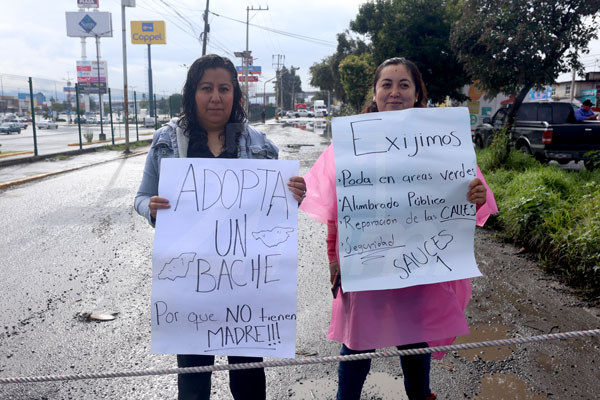 PLAZA
Coppel
ADOPTA
UN
BACHE
Por que NO tienen
MADRE!!!
Exijimos
• Poda en areas verdes
• Alumbrado Público
• Reparación de las CALLES
• Seguridad
SAUCES
1